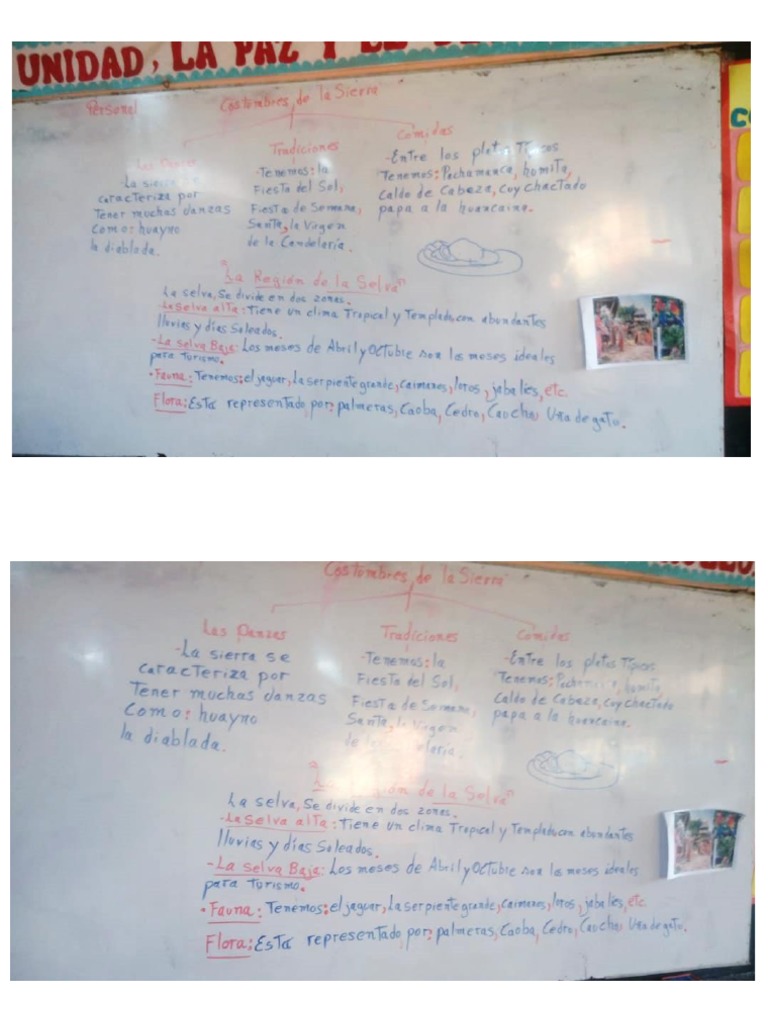 UNIDAD, LA PAZ Y EL
Personal
Costumbres de la Sierra
Las Danzas
-La sierra se
caracteriza por
Tener muchas danzas
como: huayno
la diablada.
Tradiciones
-Tenemos: la
Fiesta del Sol,
Fiesta de Semana,
Santa, la Virgen
de la Candelaria.
Comidas
-Entre los platos Típicos
Tenemos: Pachamanca, homita,
Caldo de Cabeza, cuy chactado
papa a la huancaina.
"La Región de la Selva"
La selva, Se divide en dos zonas.
-La Selva alta: Tiene un clima Tropical y Templado, con abundantes
lluvias y días Soleados.
-La selva Baja: Los meses de Abril y Octubre son los meses ideales
para Turismo.
•Fauna: Tenemos: el jaguar, La serpiente grande, caimanes, loros, jabalíes, etc.
Flora: Está representado por: palmeras, Caoba, Cedro, Caucho, Uña de gato.
Costumbres de la Sierra
Las Danzas
-La sierra se
caracteriza por
Tener muchas danzas
Como: huayno
la diablada.
Tradiciones
-Tenemos: la
Fiesta del Sol,
Fiesta de Semana,
Santa, la Virgen
de
Comidas
-Entre los platos Típicos
Tenemos: homita,
Caldo de Cabeza, cuy chactado
papa a la huancaina.
Región de la Selva"
La selva, Se divide en dos zonas.
-La Selva alta: Tiene un clima Tropical y Templado, con abundantes
lluvias y días Soleados.
-La selva Baja: Los meses de Abril y Octubre son los meses ideales
para Turismo.
•Fauna: Tenemos: el jaguar, La serpiente grande, caimanes, loros, jabalíes, etc.
Flora: Está representado por: palmeras, Caoba, Cedro, Caucho, Uña de gato.